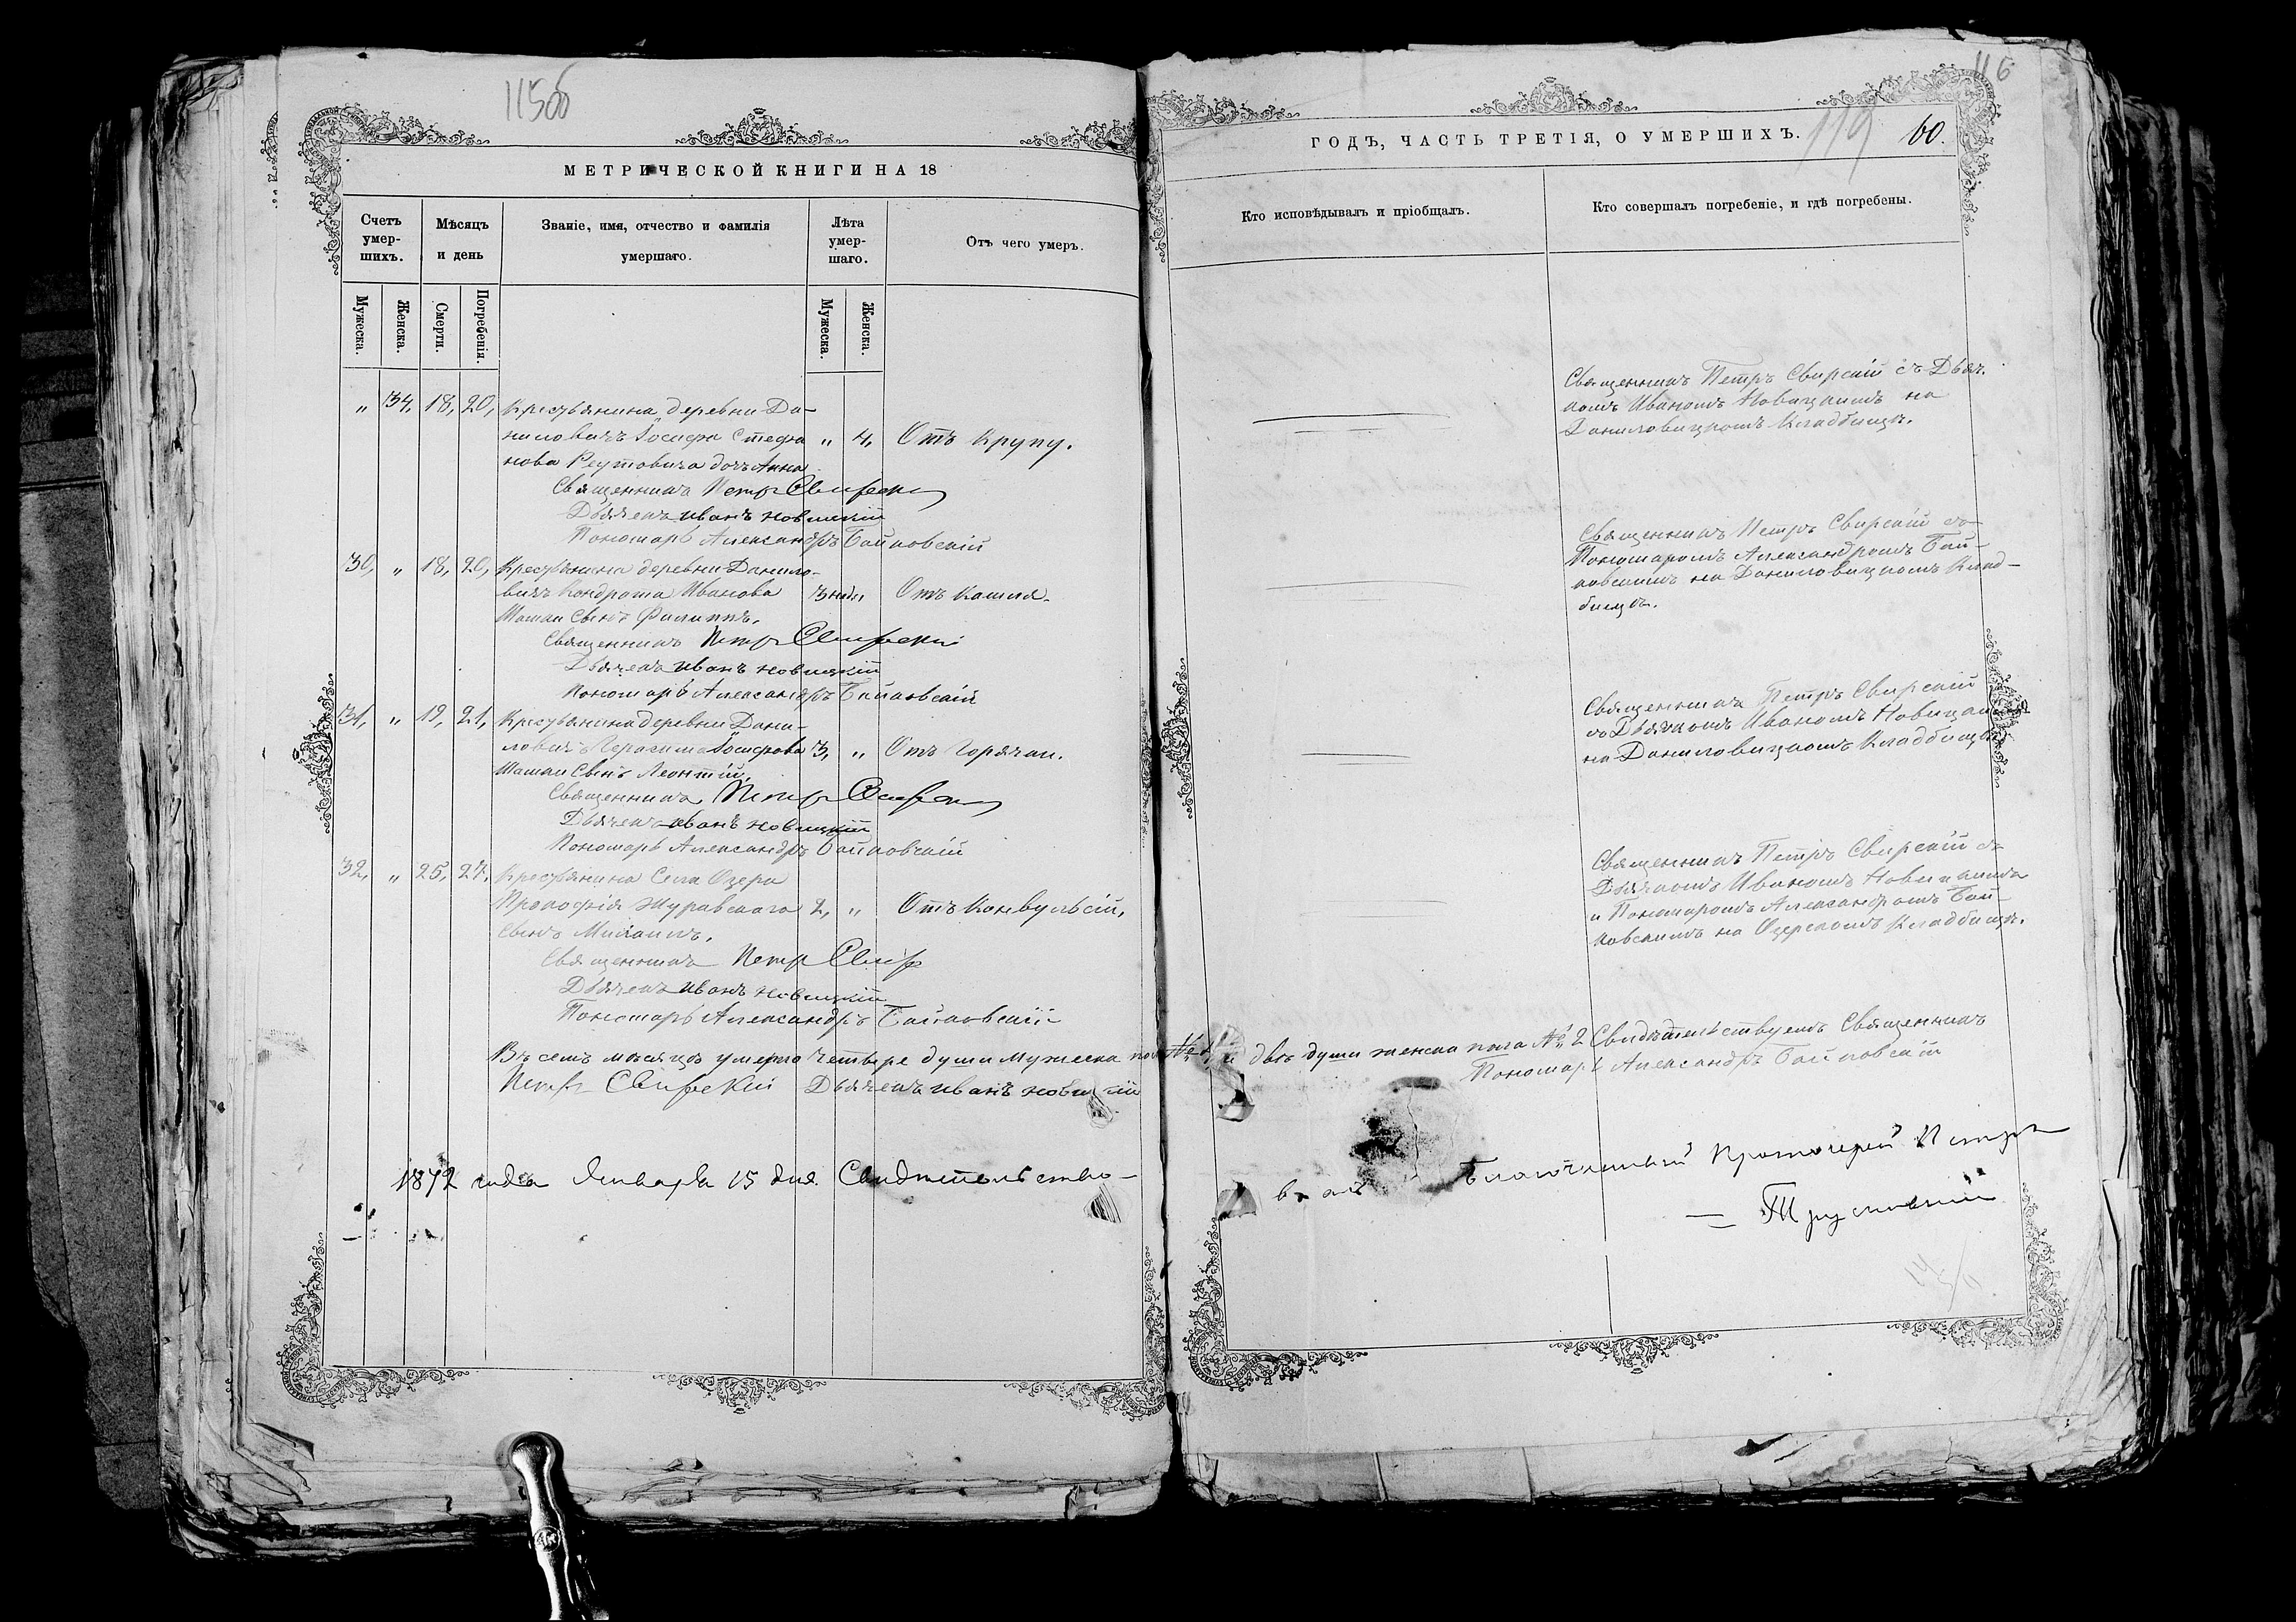 115об
МЕТРИЧЕСКОЙ КНИГИ НА 18
Счетъ умер-шихъ.
Мѣсяцъ и день
Званіе, имя, отчество и фамилія умершаго.
Лѣта умер-шаго.
Отъ чего умеръ.
Мужеска.
Женска.
Смерти.
Погребенія.
Мужеска.
Женска.
„ 34, 18, 20, Крестьянина деревни Да-
ниловичъ Іосифа Стефа „ 4, Отъ Крупу.
нова Реутовича дочь Анна
Священникъ Петръ Свирскій
Дьячекъ Иванъ Новицкій
Пономарь Александръ Байковскій
30, „ 18, 20, Крестьянина деревни Данило-
вичъ Кондрата Иванова 3 нед. „ Отъ Кашля.
Шашки сынъ Филиппъ.
Священникъ Петръ Свирскій
Дьячекъ Иванъ Новицкій
Пономарь Александръ Байковскій
31, „ 19, 21, Крестьянина деревни Дани-
ловичъ Герасима Іосифова 3, „ Отъ Горячки.
Шашки сынъ Леонтій.
Священникъ Петръ Свирскій
Дьячекъ Иванъ Новицкій
Пономарь Александръ Байковскій
32, „ 25, 27, Крестьянина Села Озера
Прокофія Журавскаго 2, „ Отъ Конвульсій,
сынъ Михаилъ.
Священникъ Петръ Свир
Дьячекъ Иванъ Новицкій
Пономарь Александръ Байковскій
Въ семъ мѣсяцѣ умерло четыре души мужеска пола №4,
Петръ Свирскій Дьячекъ Иванъ Новицкій
1872 года Января 15 дня. Свидѣтельство-
116
ГОДЪ, ЧАСТЬ ТРЕТІЯ, О УМЕРШИХЪ.
119
60.
Кто исповѣдывалъ и пріобщалъ.
Кто совершалъ погребеніе, и гдѣ погребены.
Священникъ Петръ Свирскій съ Дьяч-
комъ Иваномъ Новицкимъ на
Даниловицкомъ Кладбищѣ.
Священникъ Петръ Свирскій съ
Пономаромъ Александромъ Бай-
ковскимъ на Даниловицкомъ Клад-
бищѣ.
Священникъ Петръ Свирскій
съ Дьячкомъ Иваномъ Новицкимъ
на Даниловицкомъ Кладбищѣ
Священникъ Петръ Свирскій съ
Дьячкомъ Иваномъ Новицкимъ
и Пономаромъ Александромъ Бай-
ковскимъ на Озерскомъ Кладбищѣ.
и двѣ души женска пола №2 Свидѣтельствуемъ Священникъ
Пономарь Александръ Байковскій
валъ Благочинный Протоіерей Петръ